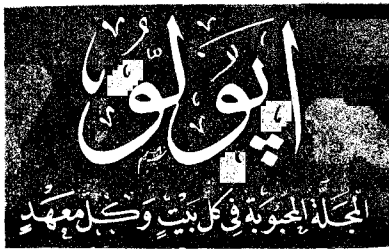 اپولّو
المجلة المحبوبة في كل بيت وكل معهد